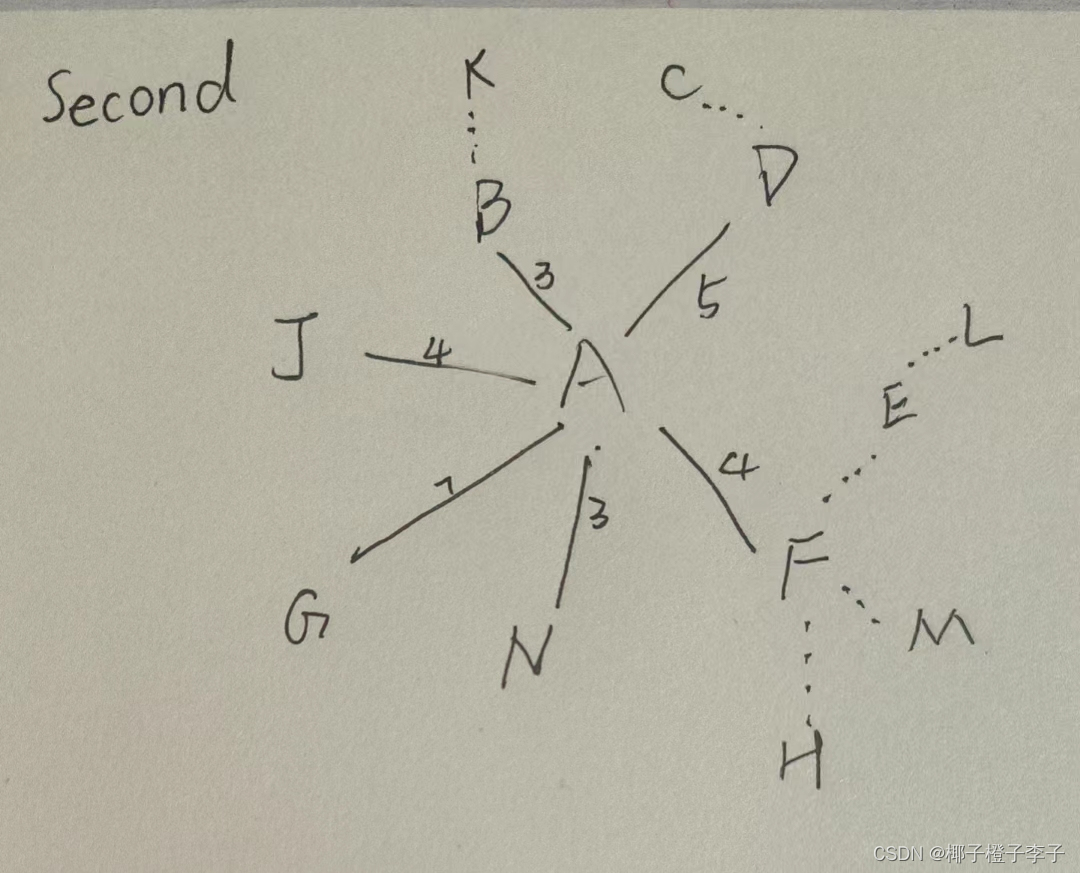 Second
K
C
D
B
3
5
J
4
A
L
E
4
7
3
F
G
N
M
H
CSDN @椰子橙子李子